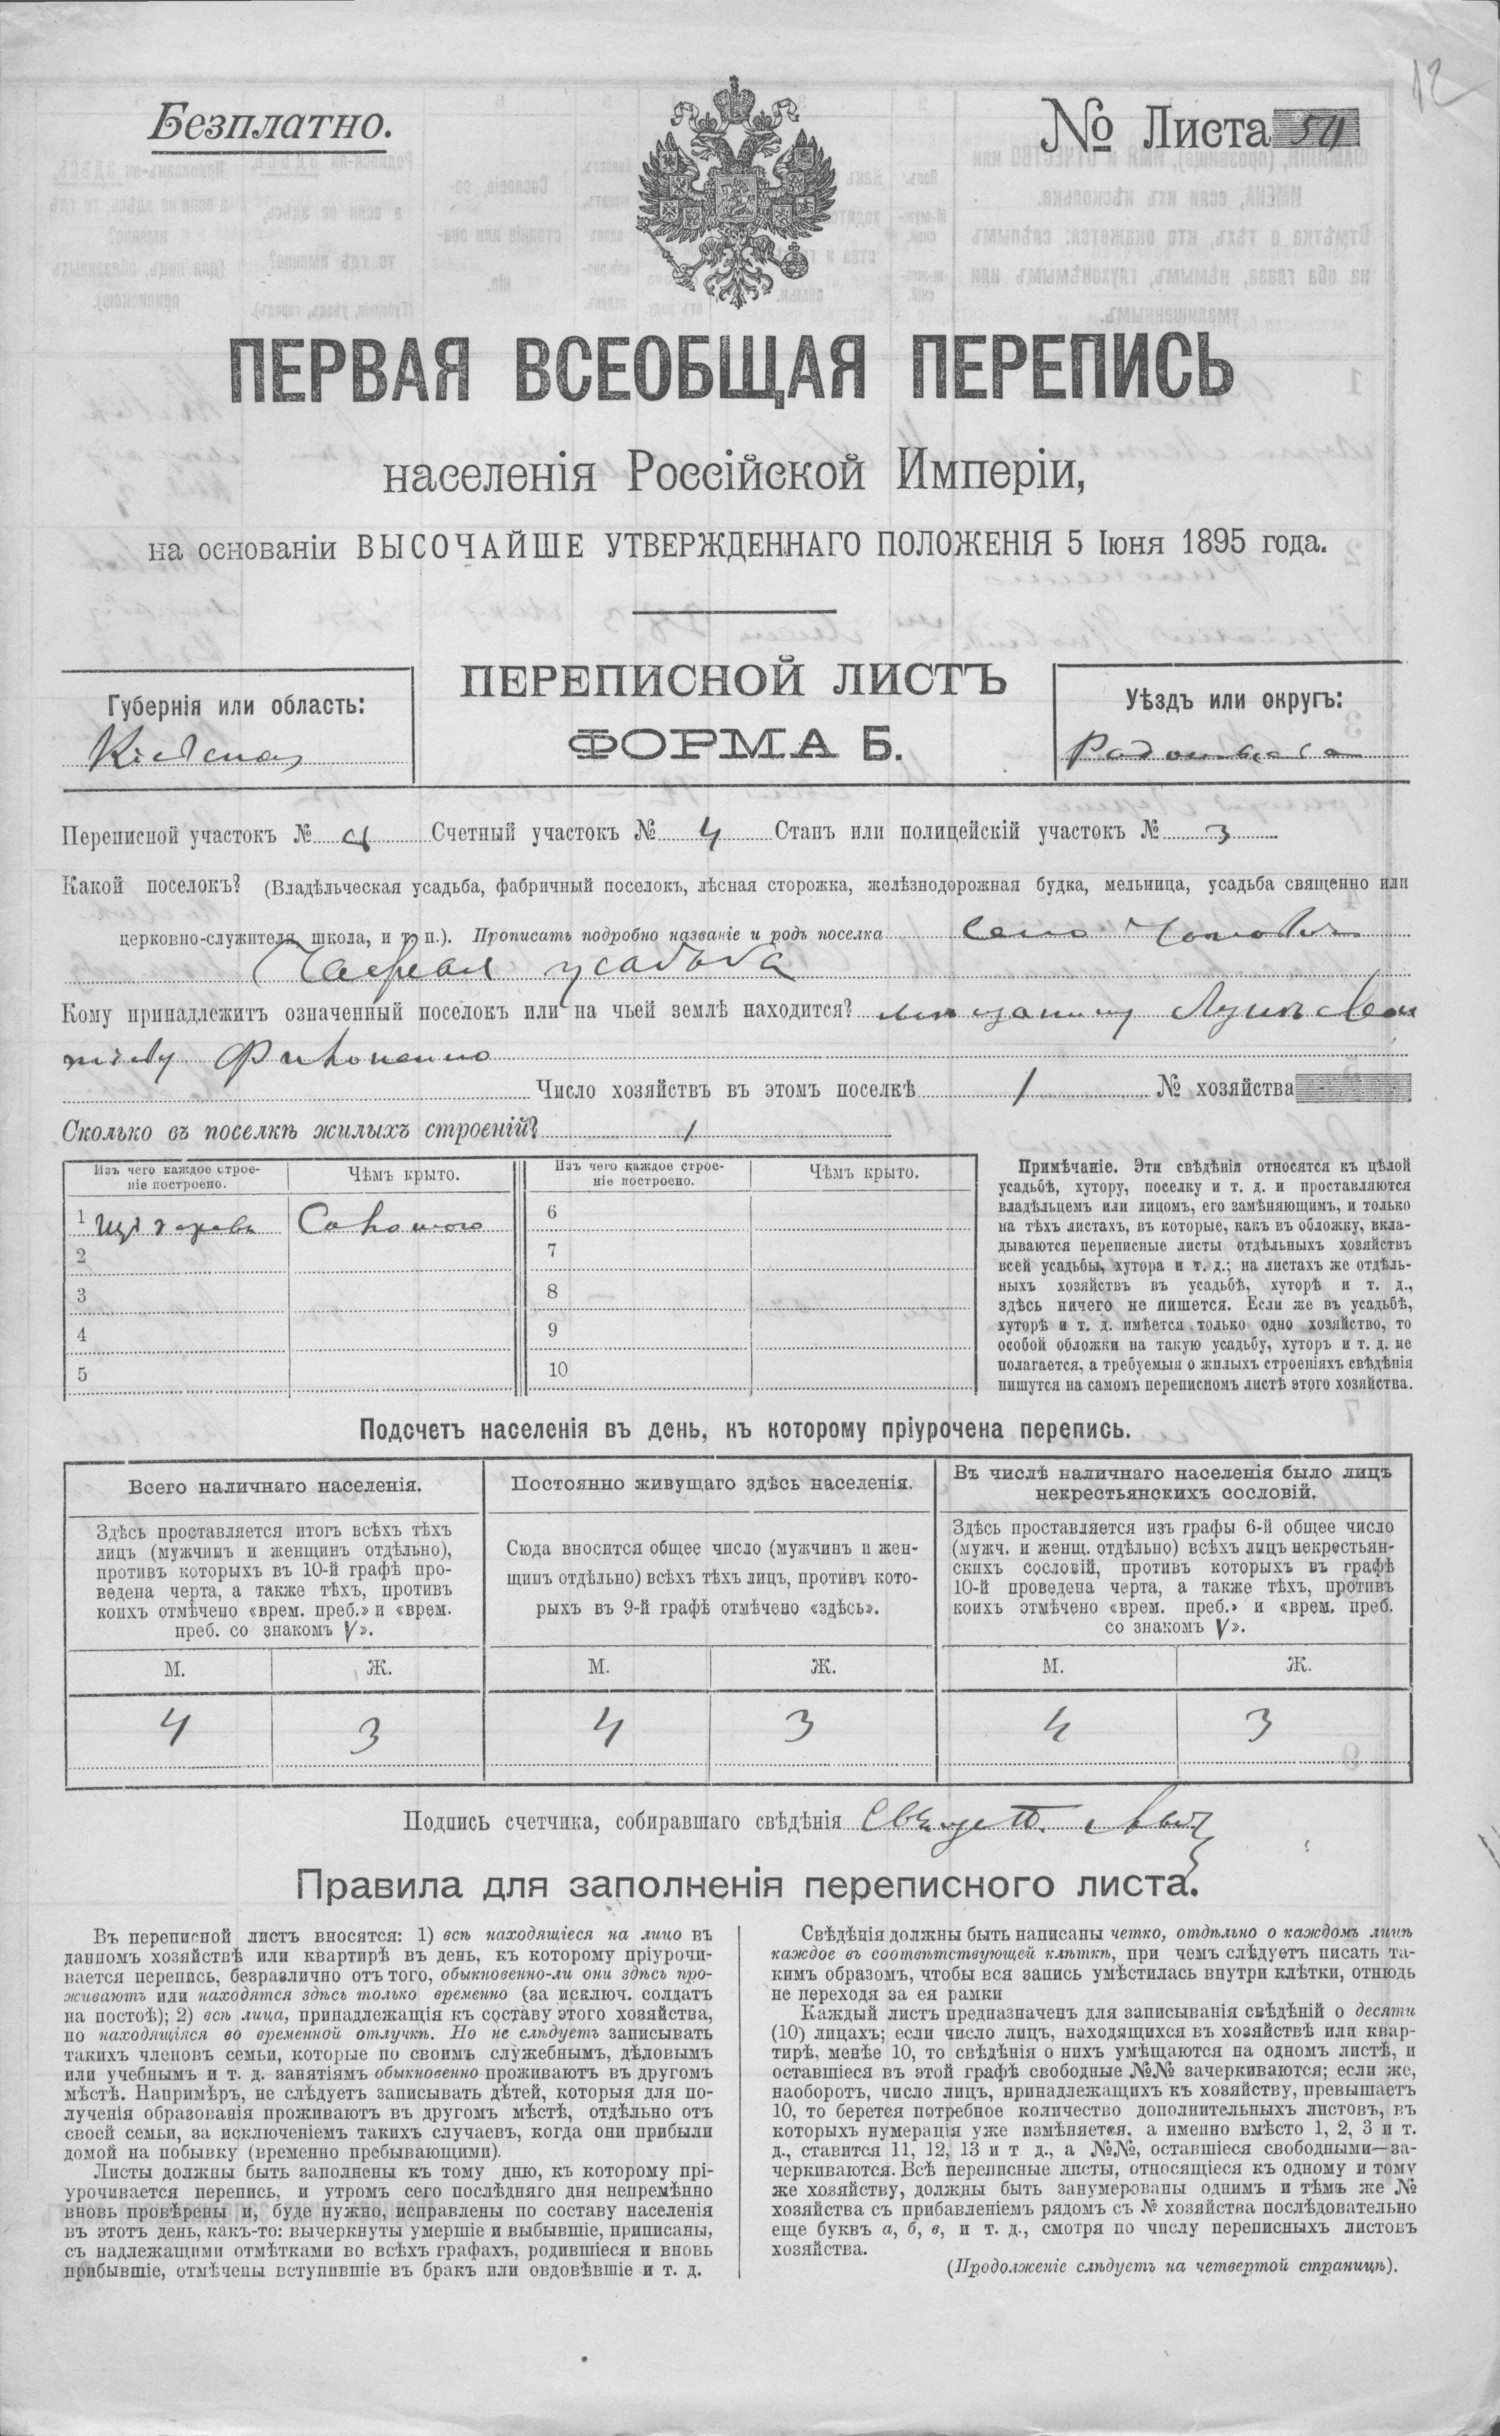 12
Безплатно.
№ Листа 54
ПЕРВАЯ ВСЕОБЩАЯ ПЕРЕПИСЬ
населенія Россійской Имперіи,
на основаніи ВЫСОЧАЙШЕ УТВЕРЖДЕННАГО ПОЛОЖЕНІЯ 5 Іюня 1895 года.
ПЕРЕПИСНОЙ ЛИСТЪ
ФОРМА Б.
Губернія или область:
Кіевская
Уѣздъ или округъ:
Радомысл
Переписной участокъ № 4 Счетный участокъ № 4 Станъ или полицейскій участокъ № 3
Какой поселокъ? (Владѣльческая усадьба, фабричный поселокъ, лѣсная сторожка, желѣзнодорожная будка, мельница, усадьба священно или
церковно-служителя, школа, и т п.). Прописать подробно названіе и родъ поселка село
усадьба
Кому принадлежитъ означенный поселокъ или на чьей землѣ находится? мѣщанину
Число хозяйствъ въ этомъ поселкѣ 1 № хозяйства
Сколько въ поселкѣ жилыхъ строеній? 1
Изъ чего каждое строе-
ніе построено.
Чѣмъ крыто.
Изъ чего каждое строе-
ніе построено.
Чѣмъ крыто.
1 Изъ дерева Соломою
2
3
4
5
6
7
8
9
10
Примѣчаніе. Эти свѣдѣнія относятся къ цѣлой
усадьбѣ, хутору, поселку и т. д. и проставляются
владѣльцемъ или лицомъ, его замѣняющимъ, и только
на тѣхъ листахъ, въ которые, какъ въ обложку, вкла-
дываются переписные листы отдѣльныхъ хозяйствъ
всей усадьбы, хутора и т. д.; на листахъ же отдѣль-
ныхъ хозяйствъ въ усадьбѣ, хуторѣ и т. д.,
здѣсь ничего не пишется. Если же въ усадьбѣ,
хуторѣ и т. д. имѣется только одно хозяйство, то
особой обложки на такую усадьбу, хуторъ и т. д. не
полагается, а требуемыя о жилыхъ строеніяхъ свѣдѣнія
пишутся на самомъ переписномъ листѣ этого хозяйства.
Подсчетъ населенія въ день, къ которому пріурочена перепись.
Всего наличнаго населенія.
Здѣсь проставляется итогъ всѣхъ тѣхъ
лицъ (мужчинъ и женщинъ отдѣльно),
противъ которыхъ въ 10-й графѣ про-
ведена черта, а также тѣхъ, противъ
коихъ отмѣчено «врем. преб.» и «врем.
преб. со знакомъ V».
М. Ж.
4 3
Постоянно живущаго здѣсь населенія.
Сюда вносится общее число (мужчинъ и жен-
щинъ отдѣльно) всѣхъ тѣхъ лицъ, противъ кото-
рыхъ въ 9-й графѣ отмѣчено «здѣсь».
М. Ж.
4 3
Въ числѣ наличнаго населенія было лицъ
некрестьянскихъ сословій.
Здѣсь проставляется изъ графы 6-й общее число
(мужч. и женщ. отдѣльно) всѣхъ лицъ некрестьян-
скихъ сословій, противъ которыхъ въ графѣ
10-й проведена черта, а также тѣхъ, противъ
коихъ отмѣчено «врем. преб.» и «врем. преб.
со знакомъ V».
М. Ж.
4 3
Подпись счетчика, собиравшаго свѣдѣнія
Правила для заполненія переписного листа.
Въ переписной листъ вносятся: 1) всѣ находящіеся на лицо въ
данномъ хозяйствѣ или квартирѣ въ день, къ которому пріурочи-
вается перепись, безразлично отъ того, обыкновенно-ли они здѣсь про-
живаютъ или находятся здѣсь только временно (за исключ. солдатъ
на постоѣ); 2) всѣ лица, принадлежащія къ составу этого хозяйства,
но находящіяся во временной отлучкѣ. Но не слѣдуетъ записывать
такихъ членовъ семьи, которые по своимъ служебнымъ, дѣловымъ
или учебнымъ и т. д. занятіямъ обыкновенно проживаютъ въ другомъ
мѣстѣ. Напримѣръ, не слѣдуетъ записывать дѣтей, которыя для по-
лученія образованія проживаютъ въ другомъ мѣстѣ, отдѣльно отъ
своей семьи, за исключеніемъ такихъ случаевъ, когда они прибыли
домой на побывку (временно пребывающими).
Листы должны быть заполнены къ тому дню, къ которому прі-
урочивается перепись, и утромъ сего послѣдняго дня непремѣнно
вновь провѣрены и, буде нужно, исправлены по составу населенія
въ этотъ день, какъ-то: вычеркнуты умершіе и выбывшіе, приписаны,
съ надлежащими отмѣтками во всѣхъ графахъ, родившіеся и вновь
прибывшіе, отмѣчены вступившіе въ бракъ или овдовѣвшіе и т. д.
Свѣдѣнія должны быть написаны четко, отдѣльно о каждомъ лицѣ
каждое въ соотвѣтствующей клѣткѣ, при чемъ слѣдуетъ писать та-
кимъ образомъ, чтобы вся запись умѣстилась внутри клѣтки, отнюдь
не переходя за ея рамки
Каждый листъ предназначенъ для записыванія свѣдѣній о десяти
(10) лицахъ; если число лицъ, находящихся въ хозяйствѣ или квар-
тирѣ, менѣе 10, то свѣдѣнія о нихъ умѣщаются на одномъ листѣ, и
оставшіеся въ этой графѣ свободные №№ зачеркиваются; если же,
наоборотъ, число лицъ, принадлежащихъ къ хозяйству, превышаетъ
10, то берется потребное количество дополнительныхъ листовъ, въ
которыхъ нумерація уже измѣняется, а именно вмѣсто 1, 2, 3 и т.
д., ставится 11, 12, 13 и т д., а №№, оставшіеся свободными—за-
черкиваются. Всѣ переписные листы, относящіеся къ одному и тому
же хозяйству, должны быть занумерованы однимъ и тѣмъ же №
хозяйства съ прибавленіемъ рядомъ съ № хозяйства послѣдовательно
еще буквъ а, б, в, и т. д., смотря по числу переписныхъ листовъ
хозяйства.
(Продолженіе слѣдуетъ на четвертой страницѣ).